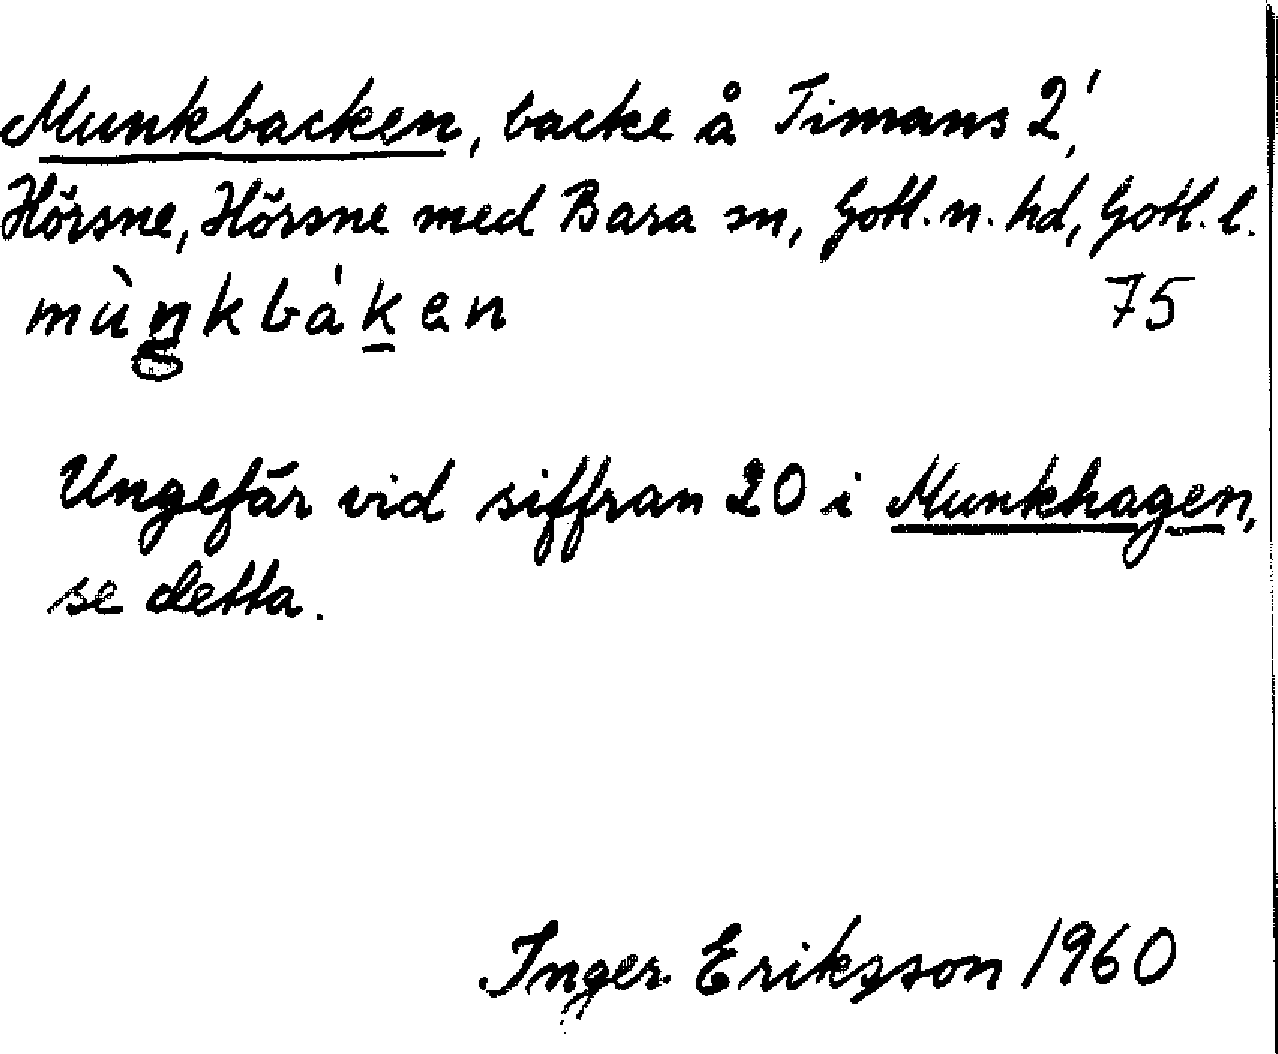 Munkbacken, backe å Timans 2¹,
Hörsne, Hörsne med Bara sn, Gotl. n. hd, Gotl. l.
mùŋkbák̲en 75
Ungefär vid siffran 20 i Munkhagen,
se detta.
Inger Eriksson 1960